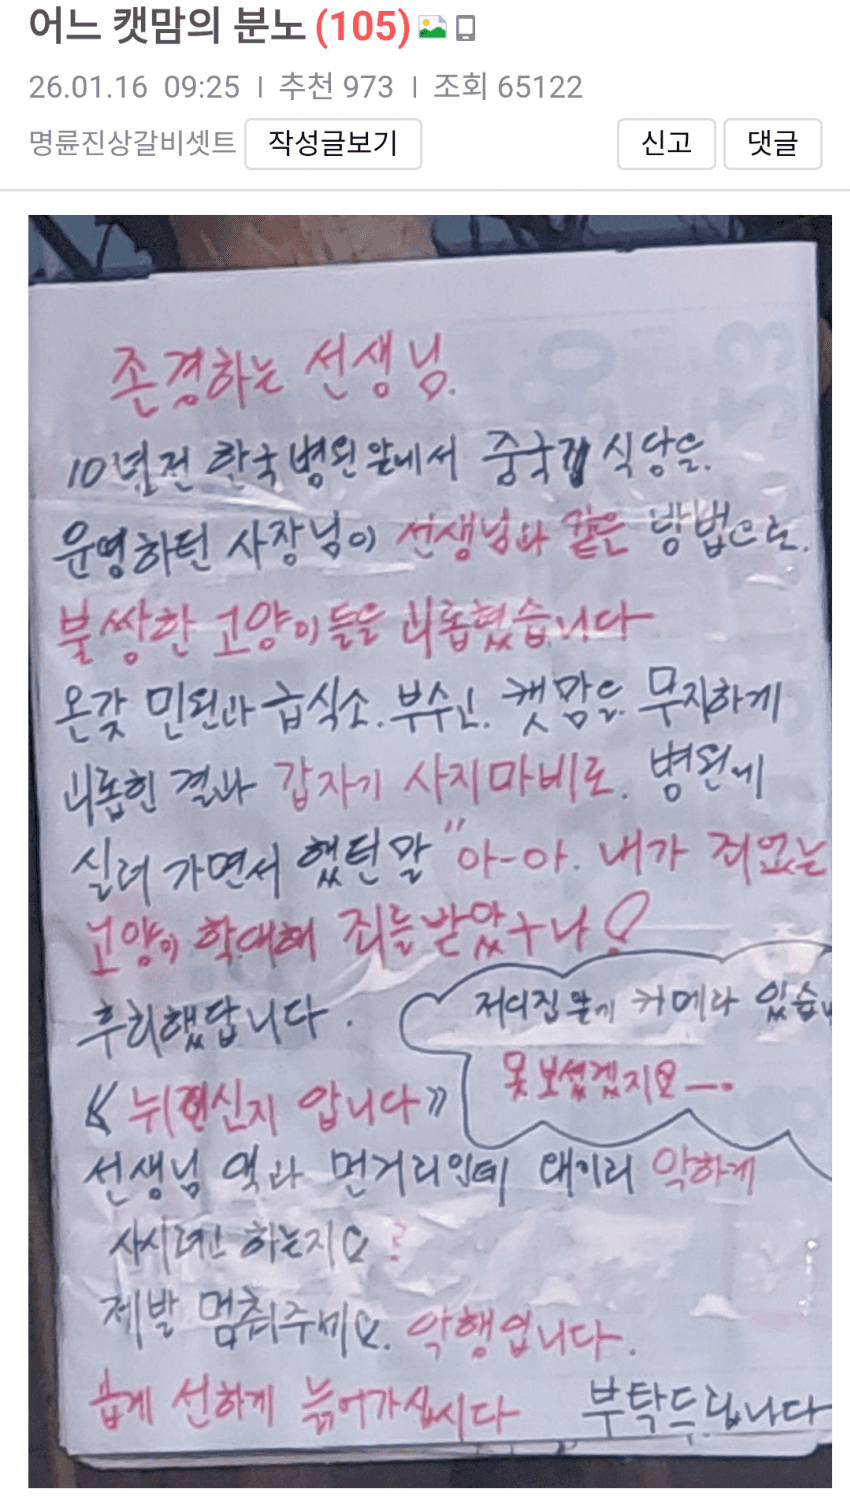 어느 캣맘의 분노 (105)
26.01.16 09:25 | 추천 973 | 조회 65122
명륜진상갈비셋트 작성글보기 신고 댓글
존경하는 선생님.
10년전 한국병원앞에서 중국집 식당을.
운영하던 사장님이 선생님과 같은 방법으로.
불쌍한 고양이들을 괴롭혔습니다
온갖 민원과 급식소. 부수신. 캣맘을 무지하게
괴롭힌 결과 갑자기 사지마비로. 병원에
실려 가면서 했던말 "아-아. 내가 죄없는
고양이 학대해 죄를받았구나!
후회했답니다.
저디집앞에 카메라 있습
못보셨겠지요—.
《 뉘신지 압니다》
선생님 댁과 먼거리인데 왜이리 악하게
사시려 하는지요?
제발 멈춰주세요. 악행입니다.
곱게 선하게 늙어가십시다 부탁드립니다